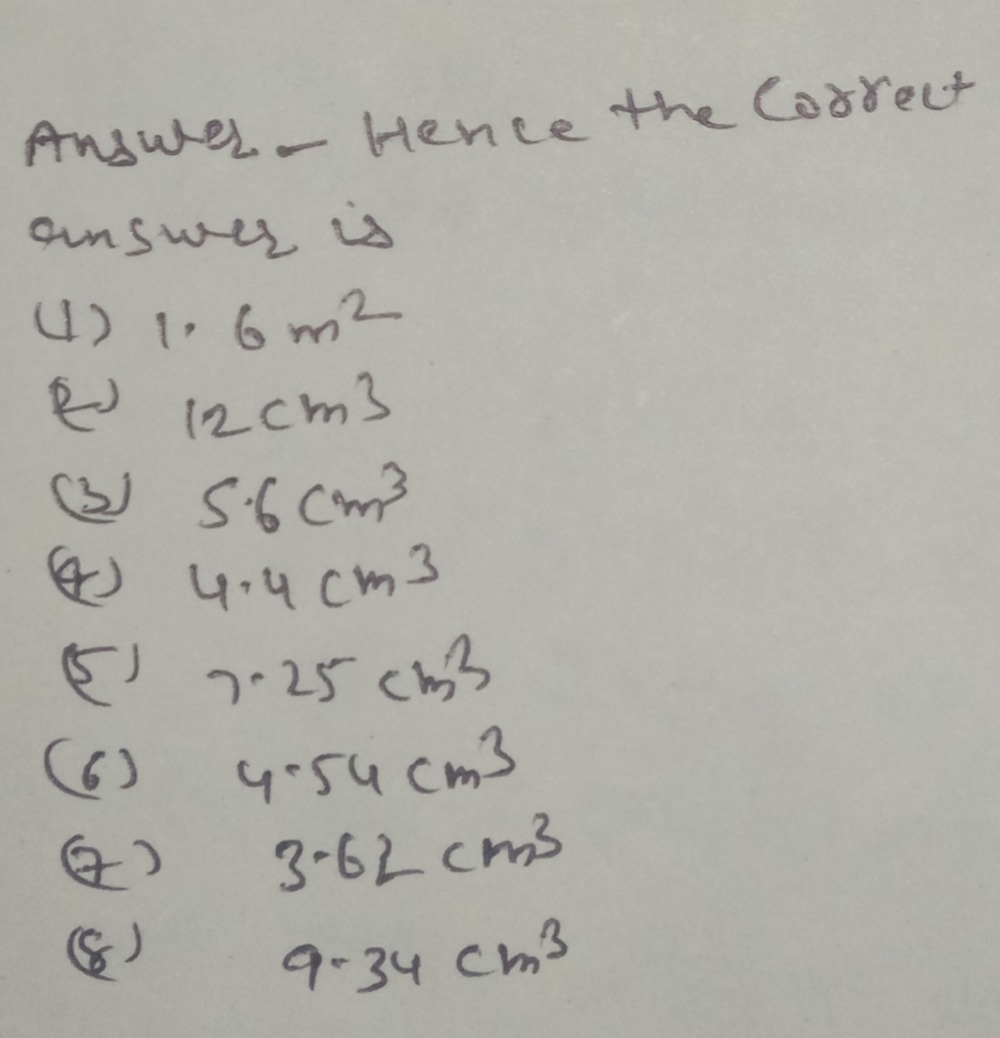 Answer - Hence the Correct
answer is
(1) 1.6 m²
(2) 12 cm³
(3) 5.6 cm³
(4) 4.4 cm³
(5) 7.25 cm³
(6) 4.54 cm³
(7) 3.62 cm³
(8) 9.34 cm³